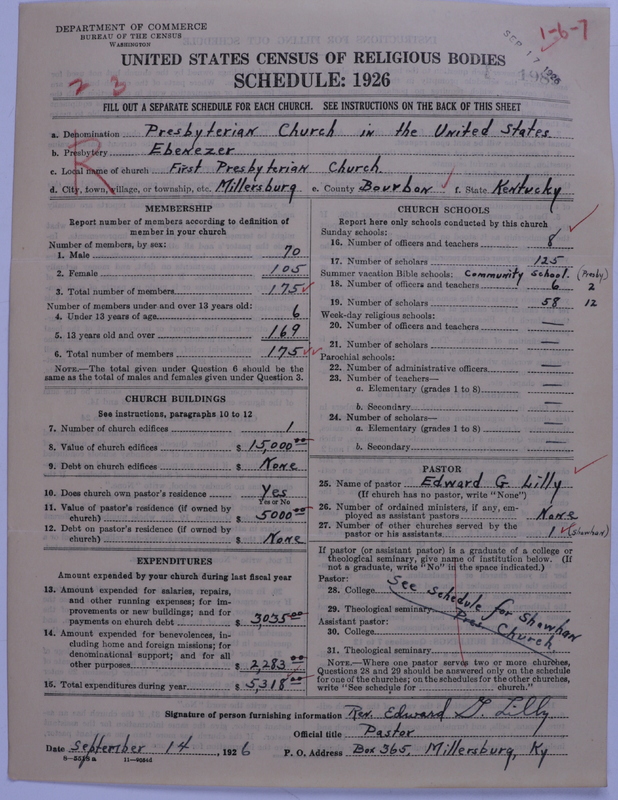 DEPARTMENT OF COMMERCE
BUREAU OF THE CENSUS
WASHINGTON
1-6-7
SEP 17 1926
UNITED STATES CENSUS OF RELIGIOUS BODIES
2 3
SCHEDULE: 1926
FILL OUT A SEPARATE SCHEDULE FOR EACH CHURCH. SEE INSTRUCTIONS ON THE BACK OF THIS SHEET
a. Denomination Presbyterian Church in the United States
R
b. Presbytery Ebenezer
c. Local name of church First Presbyterian Church.
d. City, town, village, or township, etc. Millersburg e. County Bourbon f. State Kentucky
MEMBERSHIP
Report number of members according to definition of
member in your church
Number of members, by sex:
1. Male 70
2. Female 105
3. Total number of members 175
Number of members under and over 13 years old:
4. Under 13 years of age 6
5. 13 years old and over 169
6. Total number of members 175
NOTE.—The total given under Question 6 should be
same as the total of males and females given under Question 3.
CHURCH BUILDINGS
See instructions, paragraphs 10 to 12
7. Number of church edifices 1
8. Value of church edifices $ 15,000 00
9. Debt on church edifices $ None
10. Does church own pastor's residence Yes
Yes or No
11. Value of pastor's residence (if owned by
church) $ 5000 00
12. Debt on pastor's residence (if owned by
church) $ None
EXPENDITURES
Amount expended by church during last fiscal year
13. Amount expended for salaries, repairs,
and other running expenses; for im-
provements or new buildings; and for
payments on church debt $ 3035 00
14. Amount expended for benevolences, in-
cluding home and foreign missions; for
denominational support; and for all
other purposes $ 2,283 00
15. Total expenditures during year $ 5,318 00
CHURCH SCHOOLS
Report here only schools conducted by this church
Sunday schools:
16. Number of officers and teachers 8
17. Number of scholars 125
Summer vacation Bible schools: Community School. (Presby)
18. Number of officers and teachers 6 2
19. Number of scholars 58 12
Week-day religious schools:
20. Number of officers and teachers —
21. Number of scholars —
Parochial schools:
22. Number of administrative officers —
23. Number of teachers—
a. Elementary (grades 1 to 8) —
b. Secondary —
24. Number of scholars—
a. Elementary (grades 1 to 8) —
b. Secondary —
PASTOR
25. Name of pastor Edward G. Lilly
(If church has no pastor, write "None")
26. Number of ordained ministers, if any, em-
ployed as assistant pastors None
27. Number of other churches served by the
pastor or his assistants 1 (Shawhan)
If pastor (or assistant pastor) is a graduate of a college or
theological seminary, give name of institution below. (If
not a graduate, write "No" in the space indicated.)
Pastor:
28. College
See Schedule for Shawhan
29. Theological seminary
Pres. Church
Assistant pastor:
30. College
31. Theological seminary
NOTE.—Where one pastor serves two or more churches,
Questions 28 and 29 should be answered only on the schedule
for one of the churches; on the schedules for the other churches,
write "See schedule for church."
Signature of person furnishing information Rev. Edward G. Lilly
Official title Pastor
Date September 14, 1926 P. O. Address Box 365, Millersburg, Ky